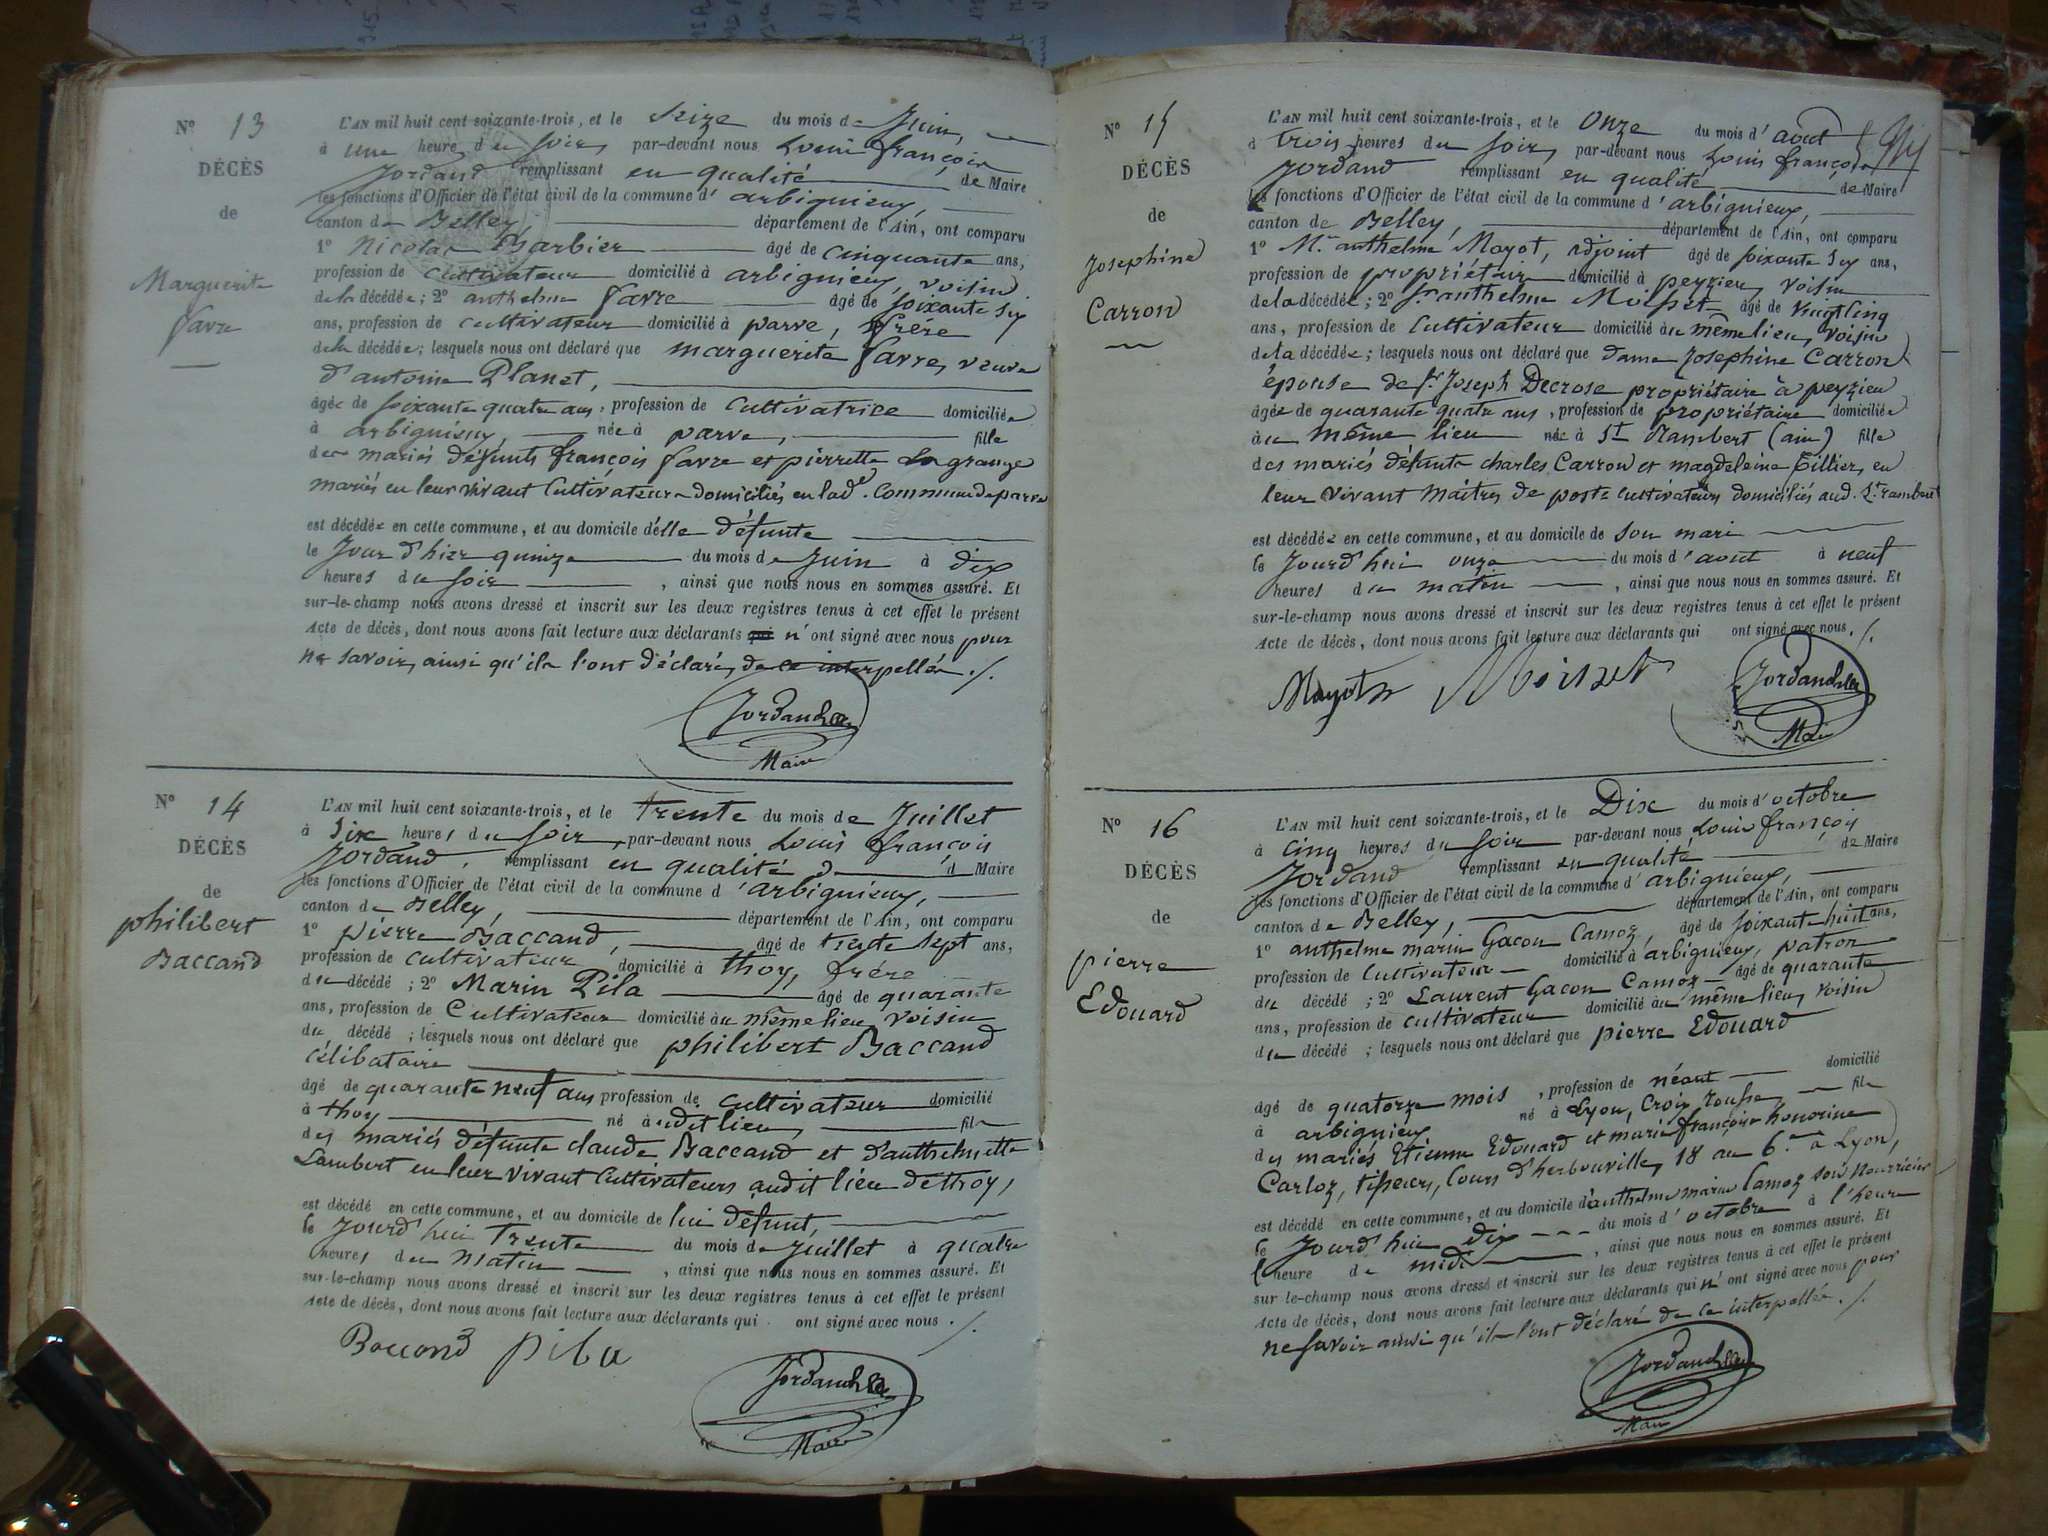 Nº 13
DÉCÈS
de
Marguerite
favre
L'AN mil huit cent soixante-trois, et le seize du mois de Juin,
à une heure du soir, par-devant nous Louis françois
Jordand remplissant en qualité de Maire
les fonctions d'Officier de l'état civil de la commune d'arbignieux,
canton de Belley département de l'Ain, ont comparu
1º Nicolas Barbier âgé de cinquante ans,
profession de cultivateur domicilié à arbignieux, voisin
de la décédée; 2º anthelme favre âgé de soixante six
ans, profession de cultivateur domicilié à parve, frère
de la décédée; lesquels nous ont déclaré que marguerite favre, veuve
d'antoine Planet,
âgée de soixante quatre ans, profession de cultivatrice domiciliée
à arbignieux, née à parve, fille
des mariés défunts françois favre et pierrette Lagrange
mariés en leur vivant Cultivateurs domiciliés en lade. Commune de parve
est décédée en cette commune, et au domicile d'elle défunte
le Jour d'hier quinze du mois de Juin à dix
heures du soir, ainsi que nous nous en sommes assuré. Et
sur-le-champ nous avons dressé et inscrit sur les deux registres tenus à cet effet le présent
Acte de décès, dont nous avons fait lecture aux déclarants qui n'ont signé avec nous pour
ne savoir, ainsi qu'ils l'ont déclaré, de ce interpellés ./.
Jordand
Maire
Nº 14
DÉCÈS
de
philibert
Baccand
L'AN mil huit cent soixante-trois, et le trente du mois de Juillet
à Six heures du soir, par-devant nous Louis françois
Jordand, remplissant en qualité d Maire
les fonctions d'Officier de l'état civil de la commune d'arbignieux,
canton de Belley, département de l'Ain, ont comparu
1º pierre Baccand, âgé de trente sept ans,
profession de cultivateur domicilié à thoy, frère
du décédé; 2º Marin Pila âgé de quarante
ans, profession de Cultivateur domicilié au même lieu, voisin
du décédé; lesquels nous ont déclaré que philibert Baccand
célibataire
âgé de quarante neuf ans profession de cultivateur domicilié
à thoy né audit lieu, fils
des mariés défunts claude Baccand et d'anthelmette
Lambert en leur vivant Cultivateurs audit lieu de thoy,
est décédé en cette commune, et au domicile de lui défunt,
le Jourd'hui trente du mois de Juillet à quatre
heures du matin, ainsi que nous nous en sommes assuré. Et
sur-le-champ nous avons dressé et inscrit sur les deux registres tenus à cet effet le présent
Acte de décès, dont nous avons fait lecture aux déclarants qui ont signé avec nous ./.
Baccand pila
Jordand
Maire
Nº 15
DÉCÈS
de
Josephine
Carron
L'AN mil huit cent soixante-trois, et le Onze du mois d'aout
à trois heures du soir, par-devant nous Louis françois
Jordand remplissant en qualité de Maire
les fonctions d'Officier de l'état civil de la commune d'arbignieux,
canton de Belley, département de l'Ain, ont comparu
1º Mr. anthelme Mayot, adjoint âgé de soixante six ans,
profession de propriétaire domicilié à peyzieu, voisin
de la décédée; 2º Sr. anthelme Moisset âgé de vingt cinq
ans, profession de Cultivateur domicilié au même lieu, voisin
de la décédée; lesquels nous ont déclaré que dame Josephine Carron
épouse de Sr. Joseph Decrose propriétaire à peyzieu
âgée de quarante quatre ans, profession de propriétaire domiciliée
au même lieu née à St Rambert (ain) fille
des mariés défunts charles Carron et magdeleine Tillier, en
leur vivant maîtres de poste cultivateurs domiciliés aud. St. rambert
est décédée en cette commune, et au domicile de son mari
le Jourd'hui onze du mois d'aout à neuf
heures du matin, ainsi que nous nous en sommes assuré. Et
sur-le-champ nous avons dressé et inscrit sur les deux registres tenus à cet effet le présent
Acte de décès, dont nous avons fait lecture aux déclarants qui ont signé avec nous ./.
Mayot Moisset Jordand
Maire
Nº 16
DÉCÈS
de
pierre
Edouard
L'AN mil huit cent soixante-trois, et le Dix du mois d'octobre
à cinq heures du soir par-devant nous Louis françois
Jordand remplissant en qualité de Maire
les fonctions d'Officier de l'état civil de la commune d'arbignieux,
canton de Belley, département de l'Ain, ont comparu
1º anthelme marin Gacon Camoz, âgé de soixante huit ans,
profession de Cultivateur domicilié à arbignieux, patron
du décédé; 2º Laurent Gacon Camoz âgé de quarante
ans, profession de cultivateur domicilié au même lieu, voisin
du décédé; lesquels nous ont déclaré que pierre Edouard
âgé de quatorze mois, profession de néant domicilié
à arbignieux né à Lyon, Croix rousse, fils
des mariés Etienne Edouard et marie françoise honorine
Carloz, tisseurs, Cours d'herbouville, 18 au 6e. à Lyon,
est décédé en cette commune, et au domicile d'anthelme marin Camoz son nourricier
le Jourd'hui dix du mois d'octobre à l'heure
heure de midi, ainsi que nous nous en sommes assuré. Et
sur-le-champ nous avons dressé et inscrit sur les deux registres tenus à cet effet le présent
Acte de décès, dont nous avons fait lecture aux déclarants qui n'ont signé avec nous pour
ne savoir ainsi qu'ils l'ont déclaré de ce interpellés ./.
Jordand
Maire